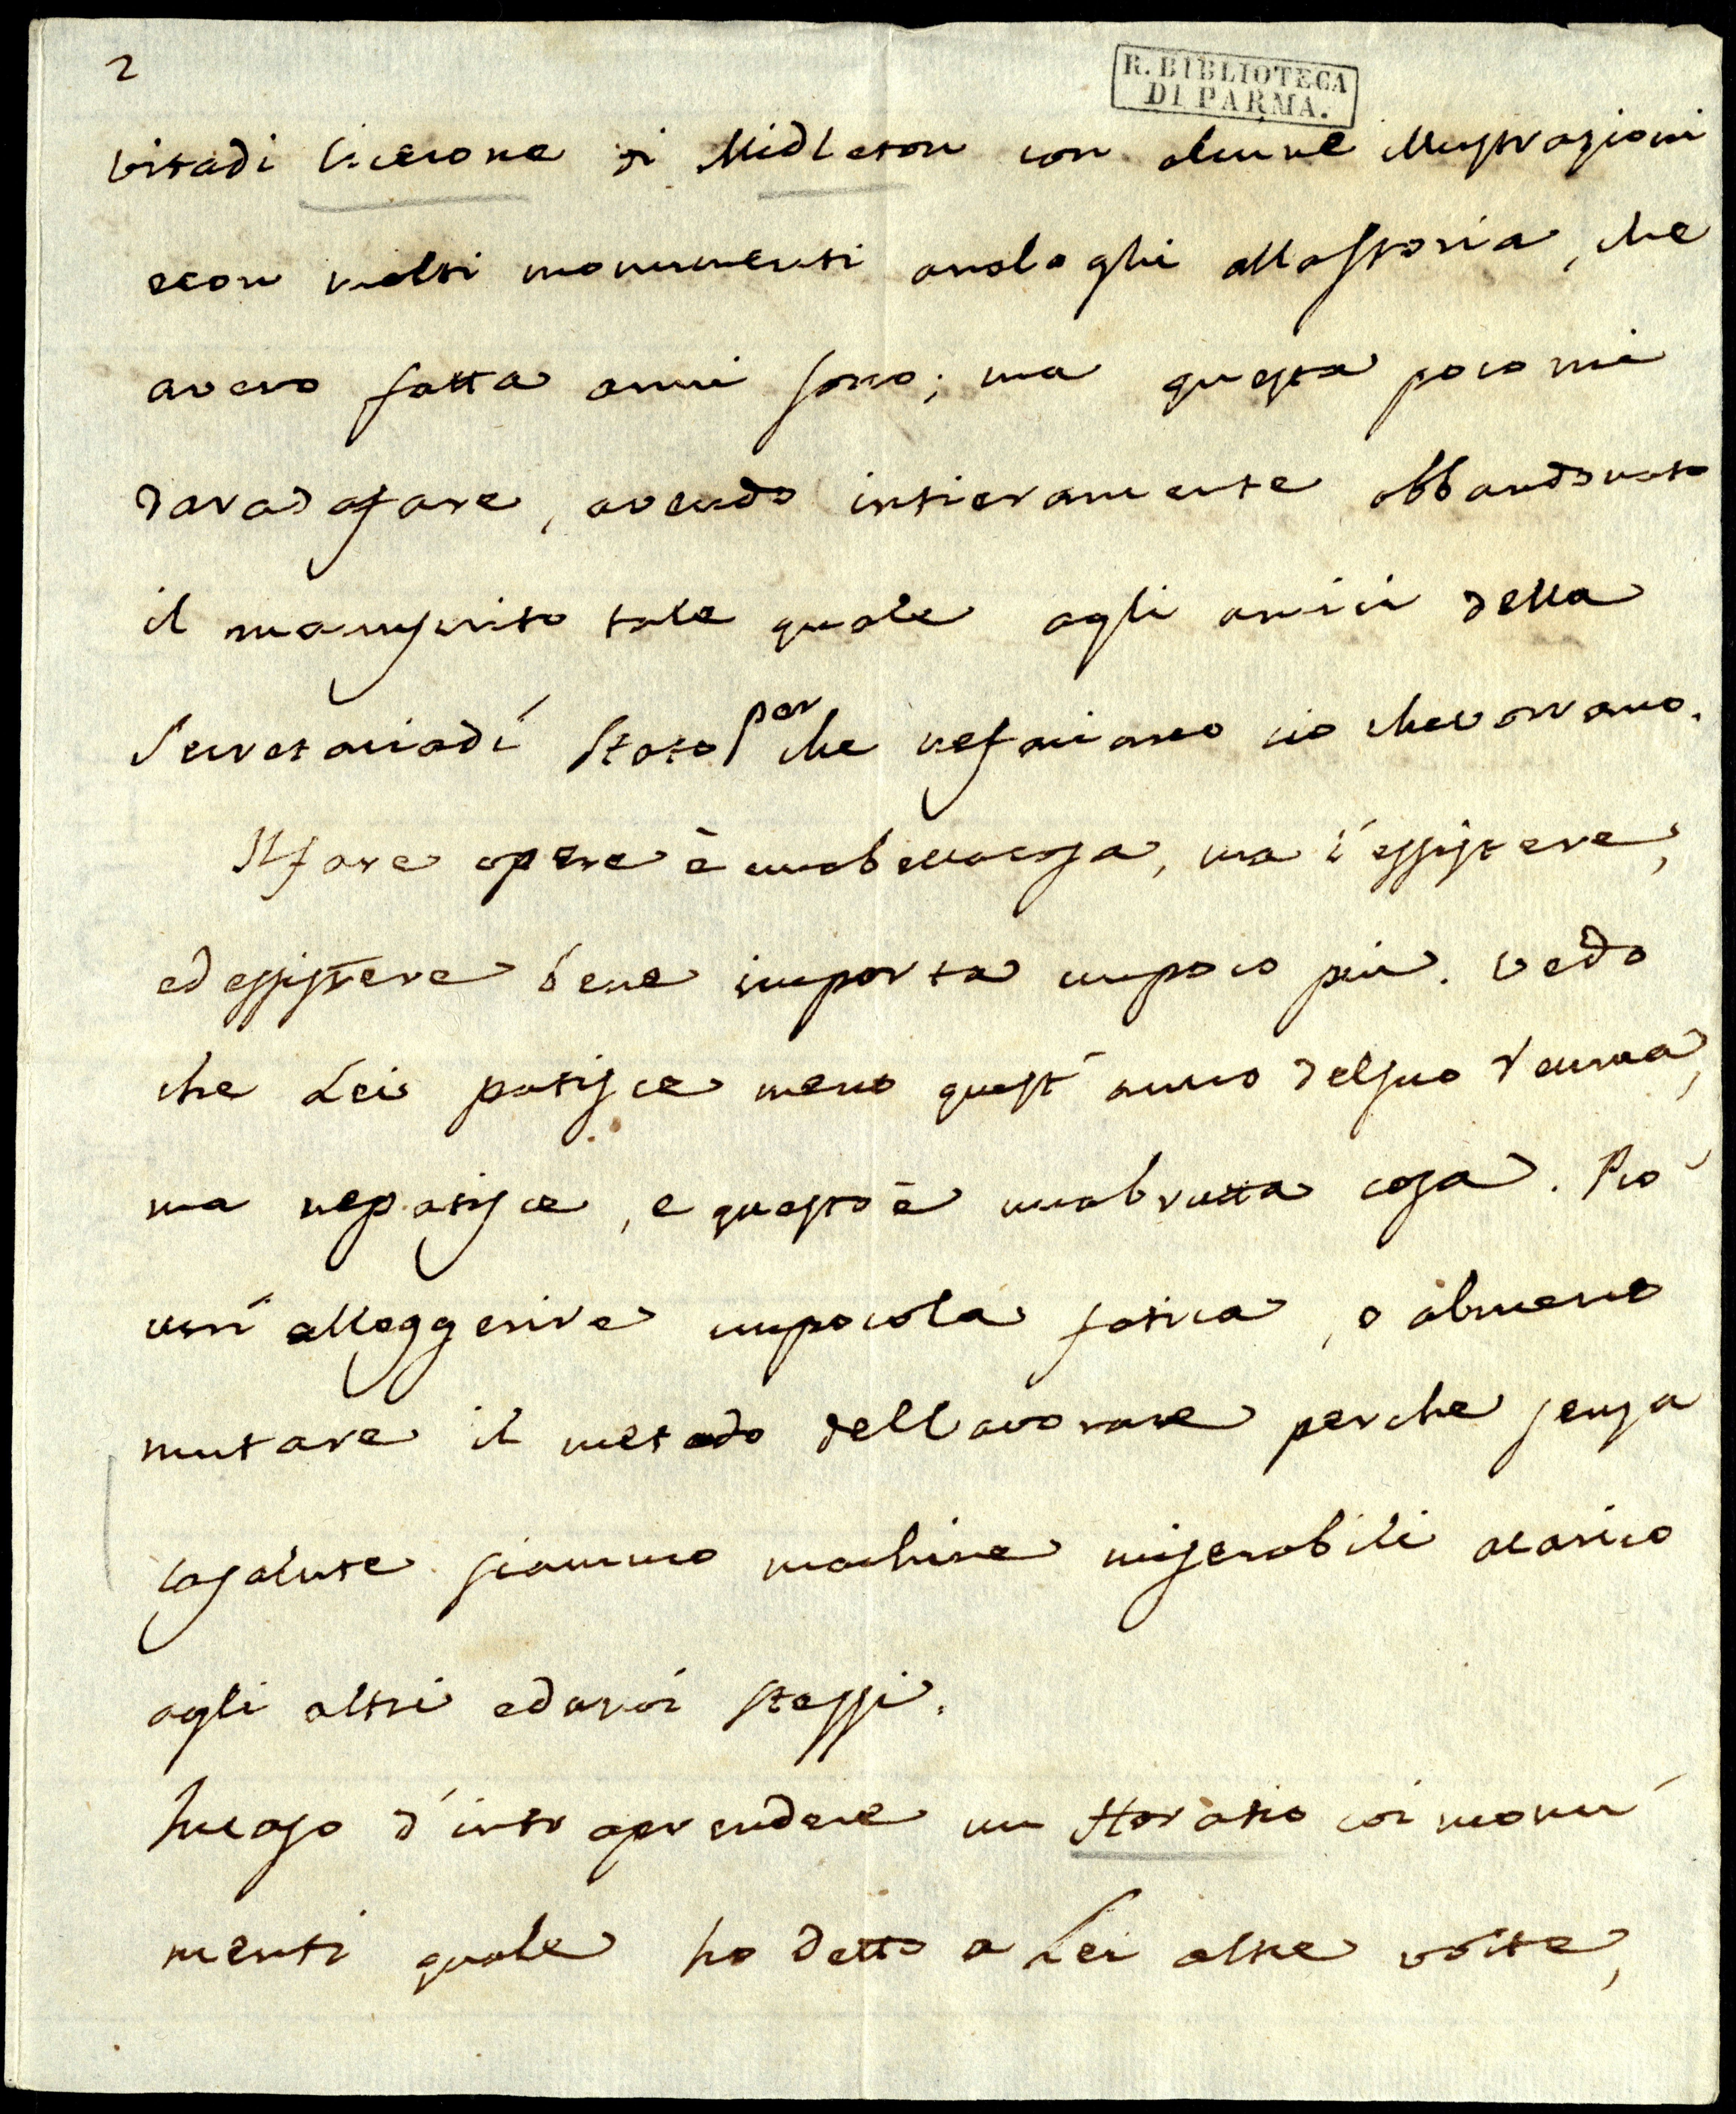 2
R. BIBLIOTECA
DI PARMA.
vita di Cicerone di Midleton con alcune illustrazioni
e con molti monumenti analoghi alla storia, che
avevo fatta anni sono; ma questa poco mi
darà da fare, avendo intieramente abbandonato
il manuscrito tale quale agli amici della
Secretaria di Stato per che ne faciano ciò che vorrano.
Il fare opere è una bella cosa, ma l'essistere,
ed essistere bene importa un poco più. Vedo
che Lei patisce meno quest'anno del suo reuma,
ma ne patisce, e questo è una bruta cosa. Può
alleggerire un poco la fatica, o almeno
mutare il metodo del lavorare perche senza
la salute siammo machine miserabili a carico
agli altri ed a noi stessi.
d'intraprendere un Horatio coi monu
menti quale ho detto a Lei altre volte,